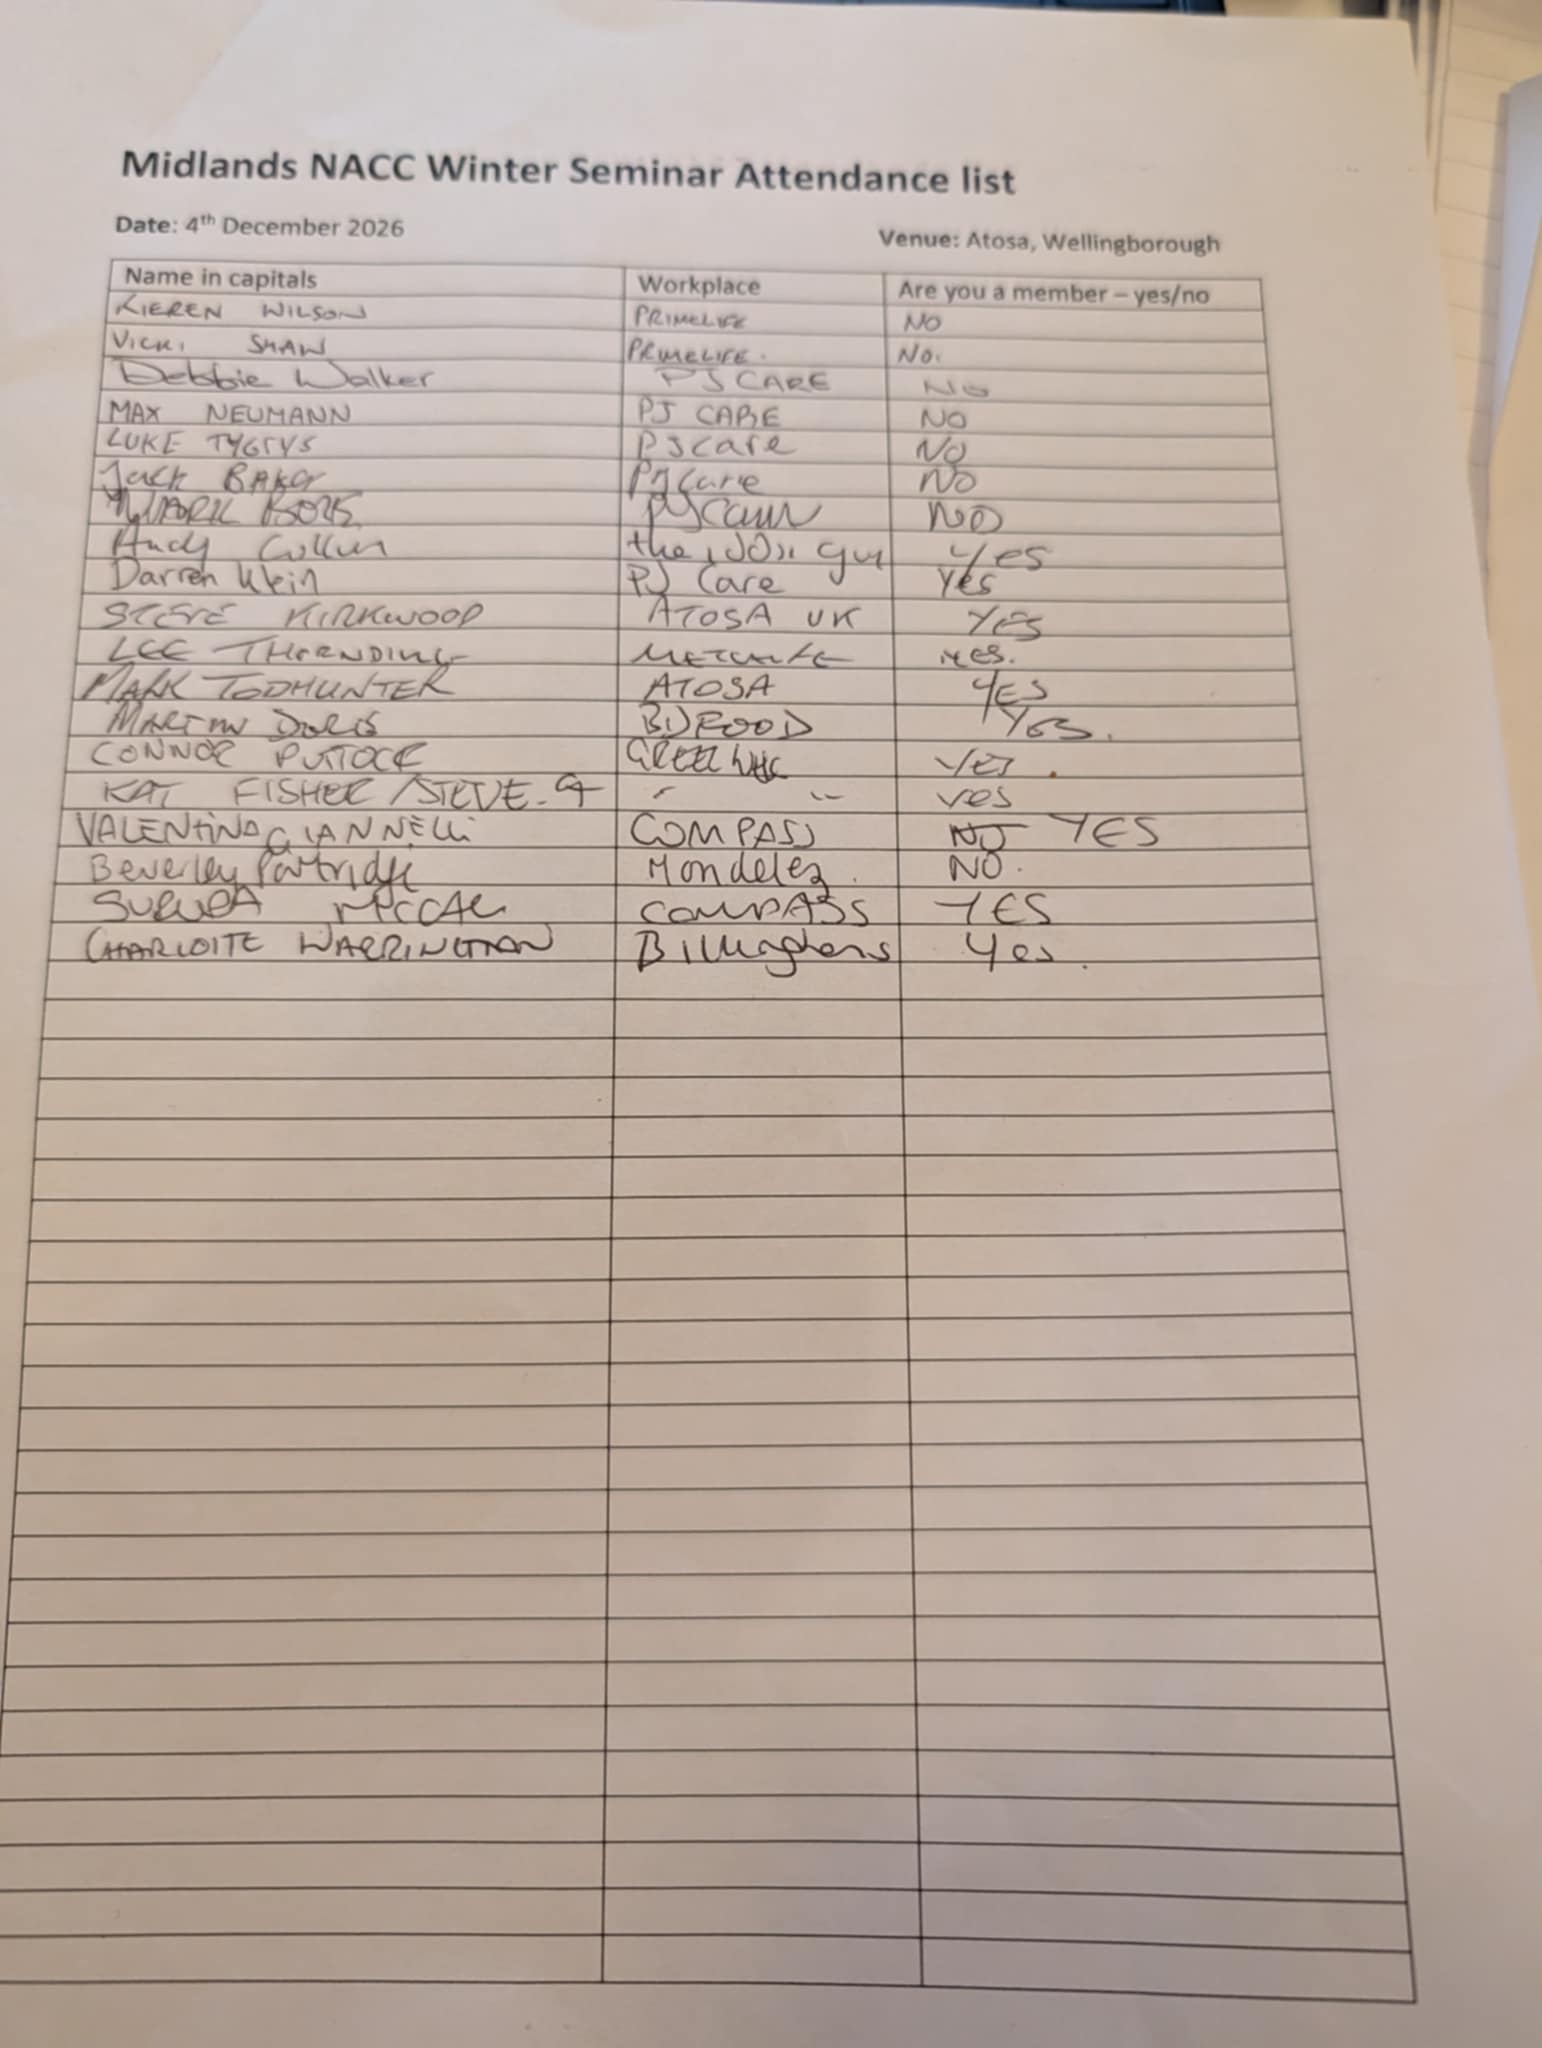 Midlands NACC Winter Seminar Attendance list
Date: 4th December 2026 Venue: Atosa, Wellingborough
Name in capitals Workplace Are you a member – yes/no
KIEREN WILSON PRIMELIFE NO
VICKI SHAW PRIMELIFE. No.
Debbie Walker PJ CARE NO
MAX NEUMANN PJ CARE NO
LUKE TYGTYS PJ care NO
Jack BAKER PJ Care NO
NO
Andy Cullum the guy Yes
Darren Klein PJ Care Yes
STEVE KIRKWOOD ATOSA UK YES
LEE METCALFE yes.
MARK TODHUNTER ATOSA YES
MARTIN DORIS BIDFOOD YES.
CONNOR PUTTOCK YES.
KAT FISHER / STEVE. G " " yes
VALENTINA GIANNELLI COMPASS NO YES
Beverley Partridge Mondelez. NO.
COMPASS YES
CHARLOTTE WARRINGTON Yes.